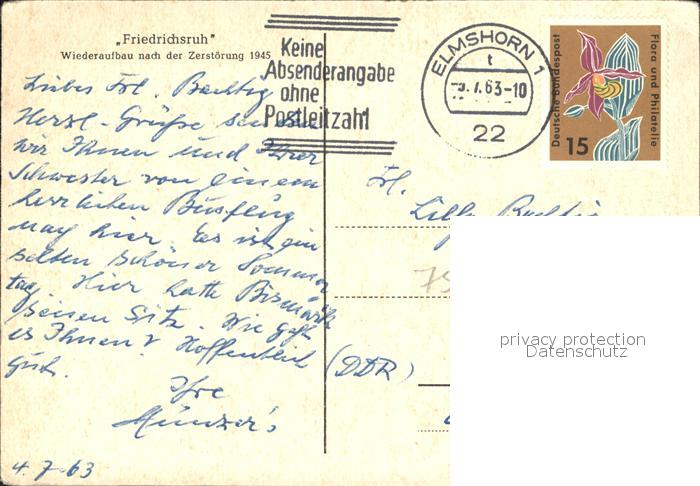 „Friedrichsruh"
Wiederaufbau nach der Zerstörung 1945
Keine
Absenderangabe
ohne
Postleitzahl
ELMSHORN 1
t
7.63-10
22
Deutsche Bundespost
Flora und Philatelie
15
Liebes Frl.
Herzl. Grüße senden
wir Ihnen und Ihrer
Schwester von einem
herrlichen Busflug
nach hier. Es ist ein
selten schöner Sommer
tag. Hier hatte Bismark
seinen Sitz. Wie geht
es Ihnen? Hoffentlich
gut.
Ihre
Münzer's
4.7.63
Frl.
(DDR)
privacy protection
Datenschutz